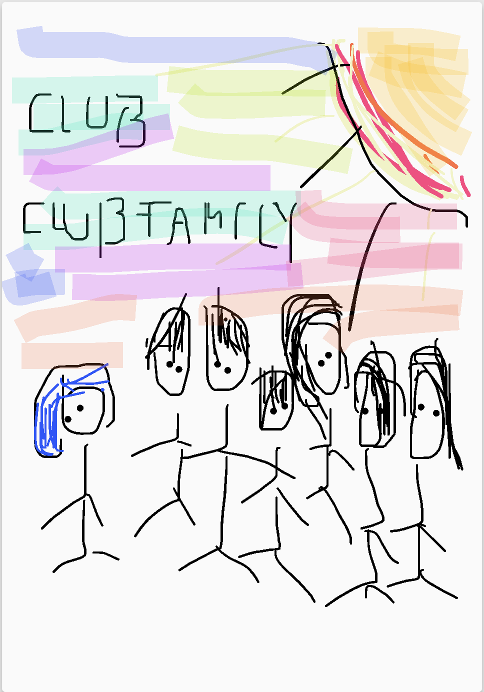 CLUB
CLUB FAMILY